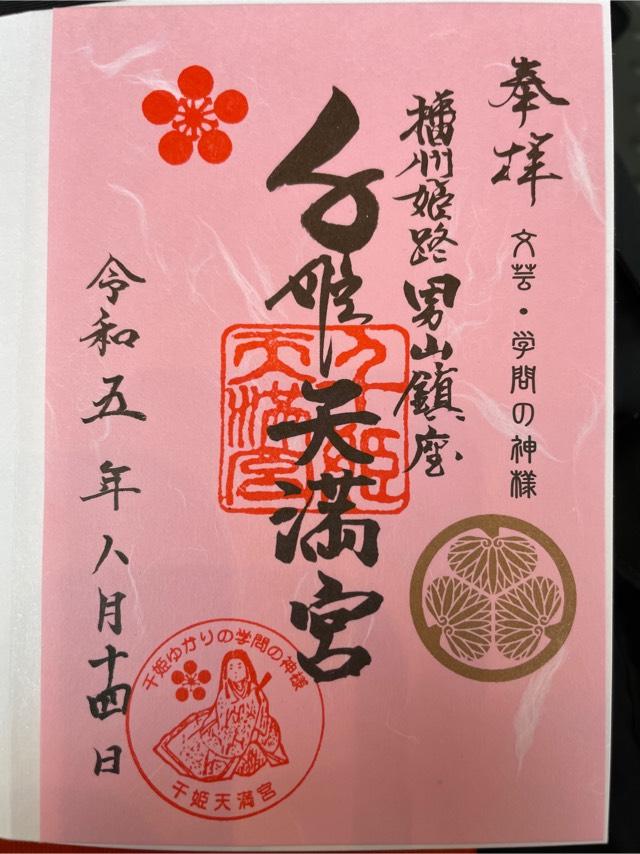 奉拝
文芸・学問の神様
播州姫路男山鎮座
千姫天満宮
千姫
天満宮
令和五年八月十四日
千姫ゆかりの学問の神様
千姫天満宮